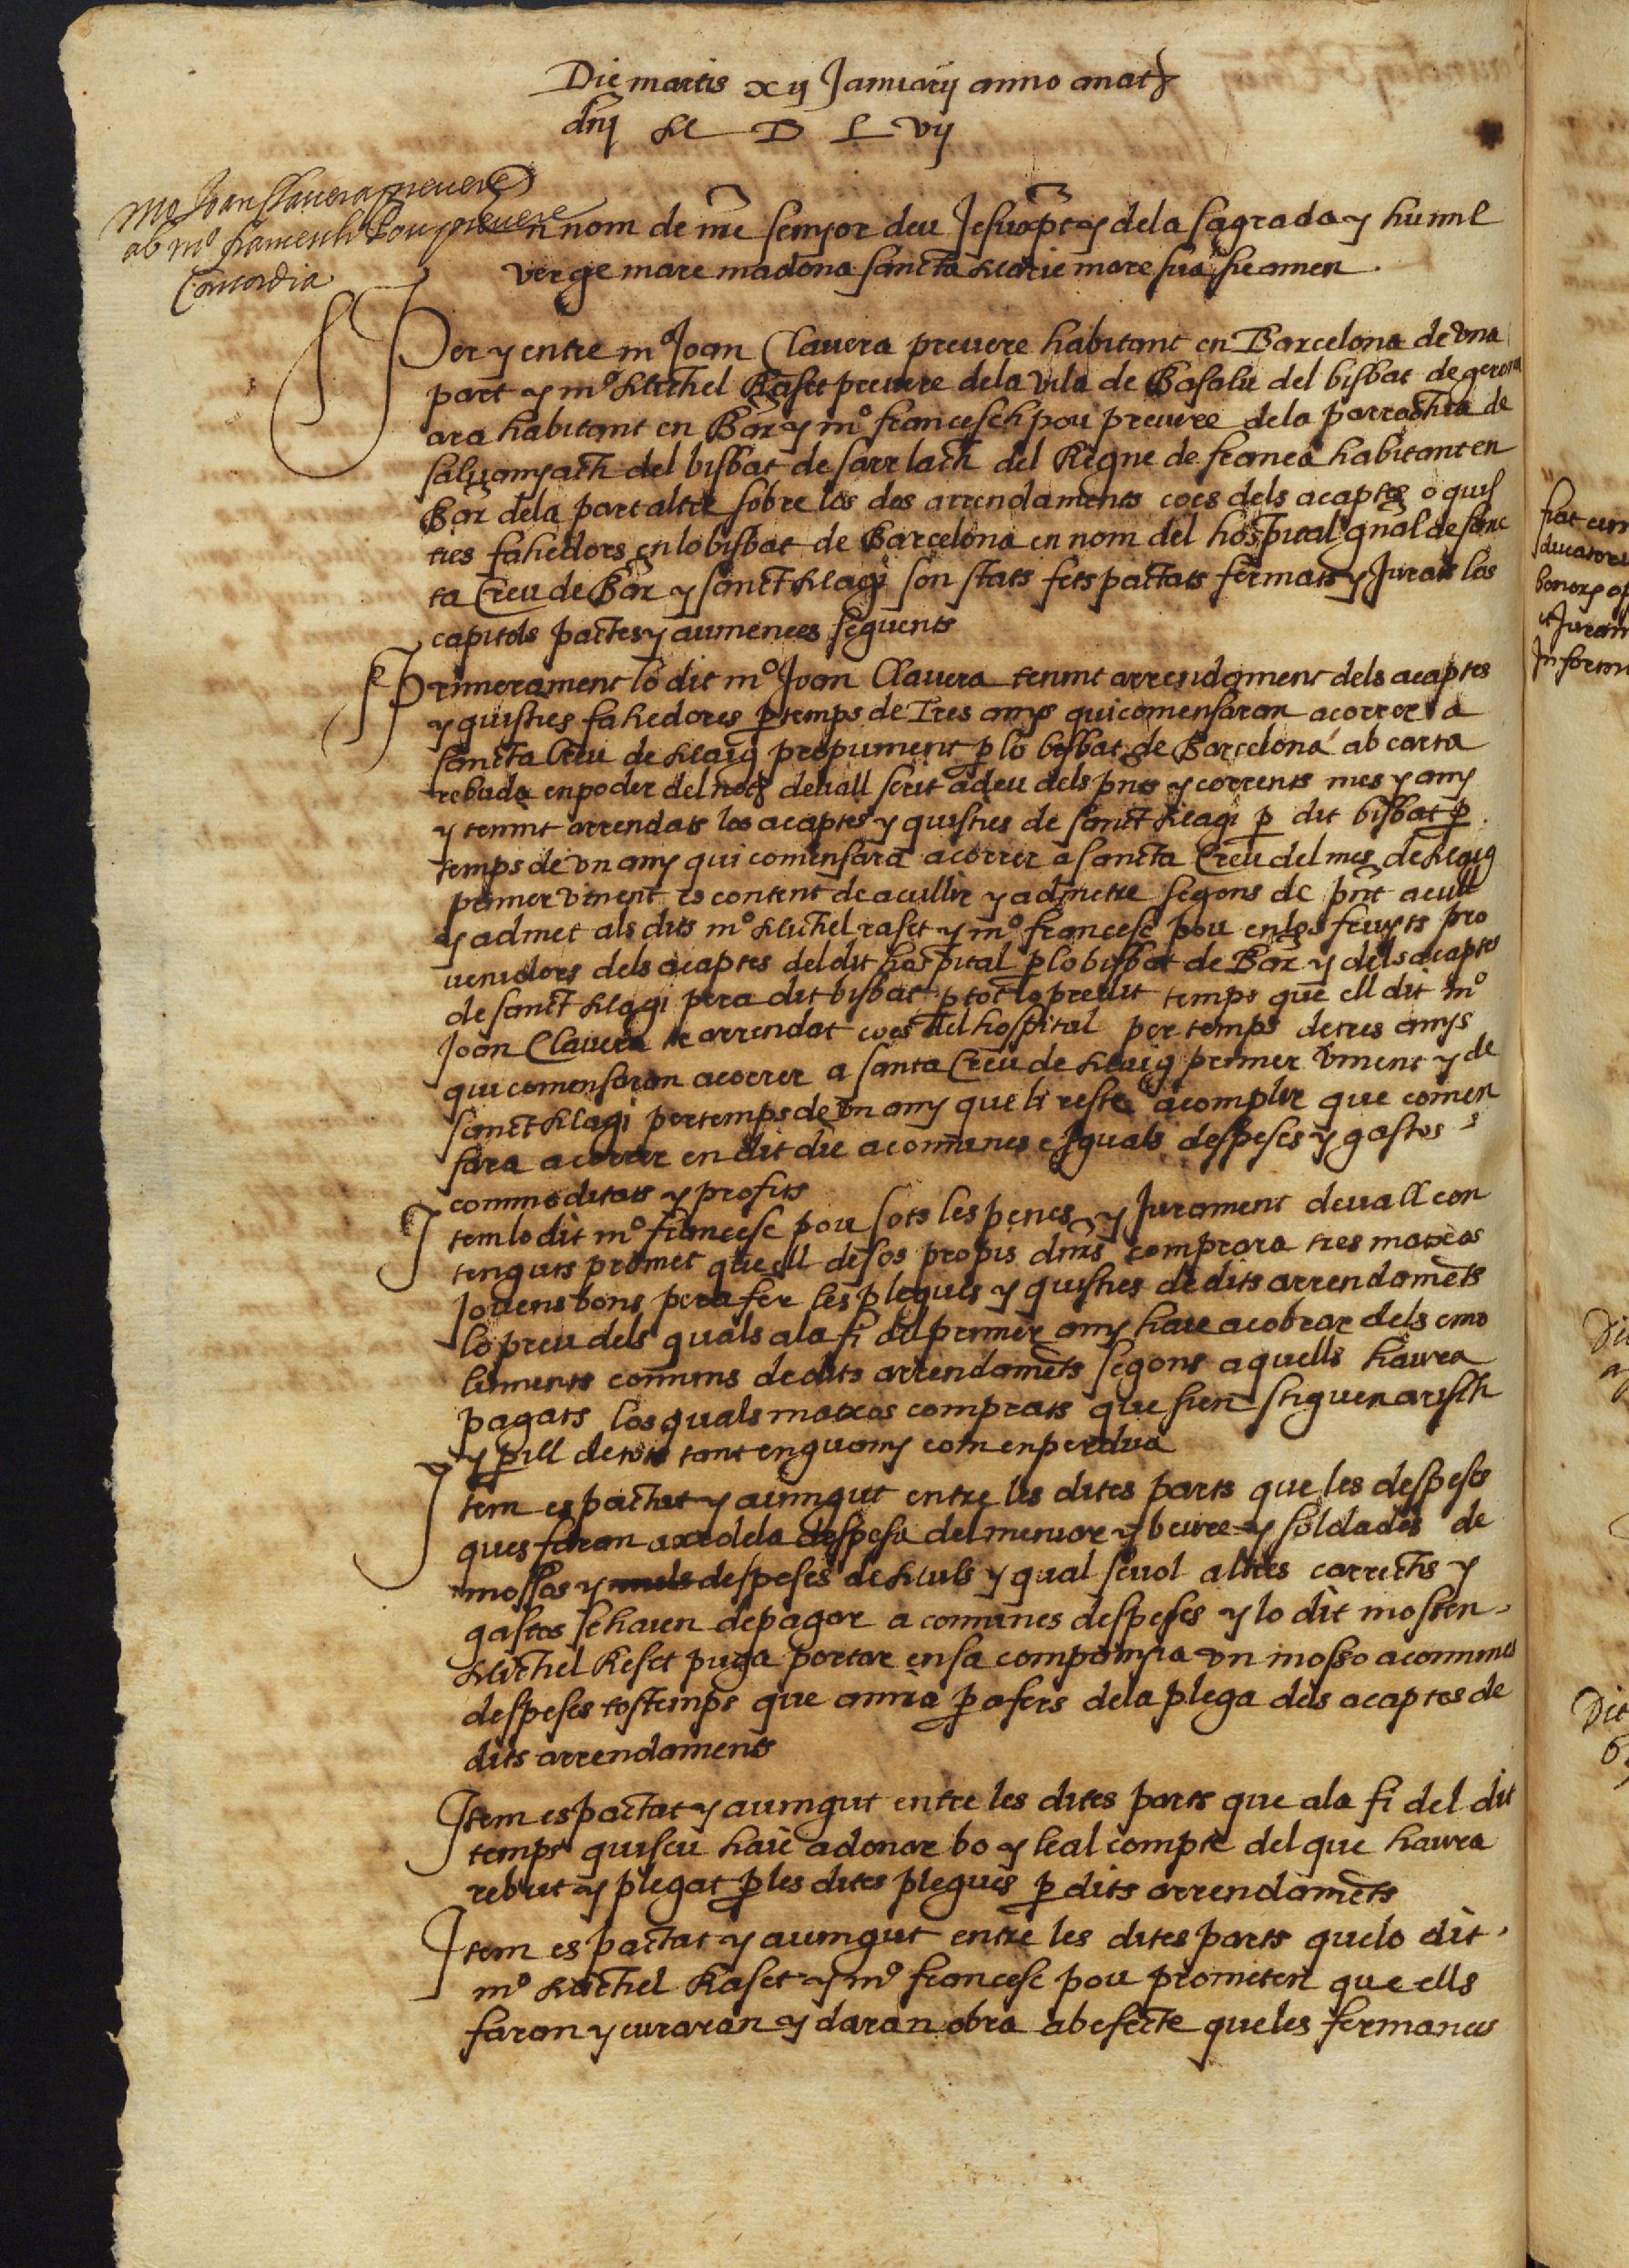 Die martis xij Januarij anno anat
dnj M D L vij
Mo Joan Clavera prevere
ab mº francesch Pou prevere
Concordia
n nom de nre senyor deu Jesuxpt y dela sagrada y humil
verge mare madona sancta Marie mare sua sie amen
Per y entre mº Joan Clavera prevere habitant en Barcelona de una
part y mº Michel Raset prevere dela vila de Basalu del bisbat de gerona
ara habitant en Bar y mº francesch pou prevere dela parrochia de
salvanyach del bisbat de sarrlach del Regne de franca habitant en
Bar dela part altre sobre los dos arrendaments coes dels acaptes o quis
ties fahedors en lo bisbat de Barcelona en nom del hospital gnal de sanc
ta Creu de Bar y sanct Magi son stats fets pactats fermats y Jurats los
capitols pactes y avinences seguents
Primerament lo dit mº Joan Clavera tenint arrendament dels acaptes
y quisties fahedores p temps de Tres anys qui comensaran acorrer a
sancta Creu de Maig propvinent p lo bisbat de Barcelona ab carta
rebuda en poder del not devall scrit a deu dels pnts y corrents mes y any
y tenint arrendats los acaptes y quisties de sanct Magi p dit bisbat p
temps de un any qui comensara acorrer a sancta Creu del mes de Maig
primer vinent es content de acullir y admetre segons de pnt acull
y admet als dits mº Michel raset y mº francesc pou en los fruyts pro
venidors dels acaptes del dit hospital p lo bisbat de Bar y dels acaptes
de sanct Magi pera dit bisbat p tot lo predit temps que ell dit mº
Joan Clavera te arrendat coes del hospital per temps de tres anys
qui comensaran acorrer a santa Creu de Maig primer vinent y de
sanct Magi per temps de un any que li resta acomplir que comen
sara acorrer en dit die a comunes e Iguals despeses y gastos
commoditats y profits
Item lo dit mº francesc pou sots les penes y Jurament devall con
tenguts promet que ell de sos propis dins comprara tres matxos
Jovens bons pera fer les plegues y quisties de dits arrendamets
lo preu dels quals ala fi del primer any haie acobrar dels emo
luments comuns de dits arrendamets segons aquells haura
pagats los quals matxos comprats que sien stiguen arisch
y pill de tots tant en guany com en perdua
Item es pactat y avingut entre les dites parts que les despeses
ques faran axi dela despesa del meniar y beure y soldades de
mossos y despeses de Muls y qual sevol altres carrechs y
gastos se haien de pagar a comunes despeses y lo dit mossen
Michel Reset puga portar en sa companyia un mosso a comunes
despeses tostemps que annia p afers dela plega dels acaptes de
dits arrendaments
Item es pactat y avingut entre les dites parts que ala fi del dit
temps quiscu haie adonar bo y leal compte del que haura
rebut y plegat p les dites plegues p dits arrendamets
Item es pactat y avingut entre les dites parts que lo dit
mº Michel Raset y mº francesc pou prometen que ells
faran y curaran y daran obra ab efecte que les fermances
fiat cum
Juram